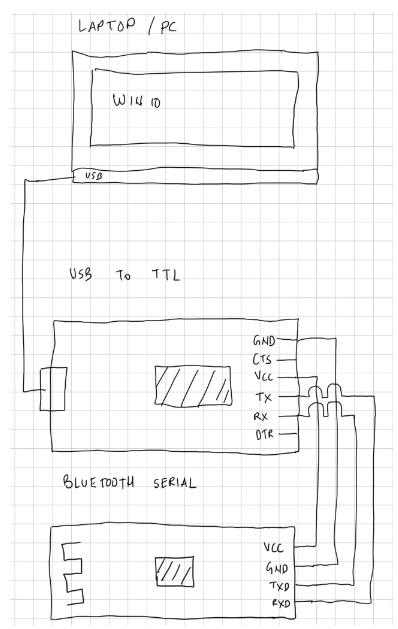 LAPTOP / PC
WIN 10
USB
USB TO TTL
GND
CTS
VCC
TX
RX
DTR
BLUETOOTH SERIAL
VCC
GND
TXD
RXD